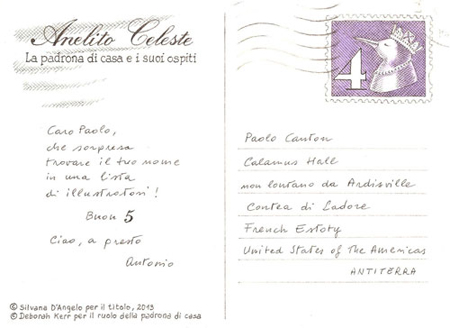 Anelito Celeste
La padrona di casa e i suoi ospiti
4
Caro Paolo,
che sorpresa
trovare il tuo nome
in una lista
di illustratori!
Buon 5
Ciao, a presto
Antonio
© Silvana D'Angelo per il titolo, 2013
© Deborah Kerr per il ruolo della padrona di casa
Paolo Canton
Calamus Hall
non lontano da Ardisville
Contea di Ladore
French Estoty
United States of The Americas
ANTITERRA